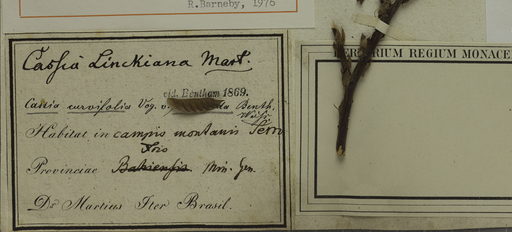 R.Barneby, 1976
Cassia Linckiana Mart.
vid. Bentham 1869.
Cassia curvifolia Vog. v. Benth.
Habitat in campis montanis
Frio
Provinciae Bahiensis Min. Gen.
Dr Martius Iter Brasil.
HERBARIUM REGIUM MONACE